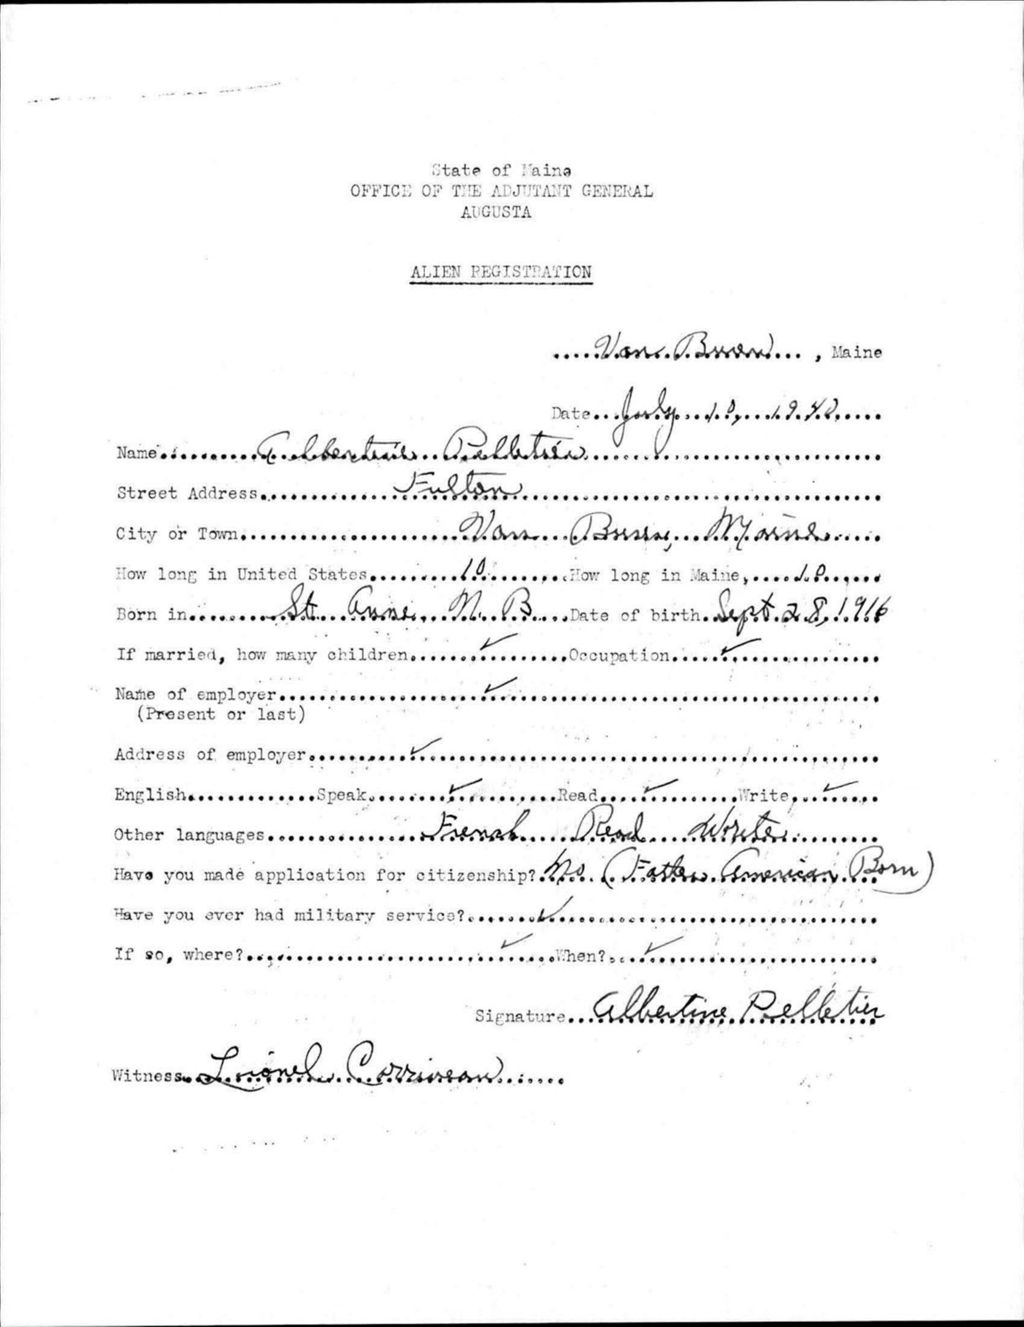 State of Maine
OFFICE OF THE ADJUTANT GENERAL
AUGUSTA
ALIEN REGISTRATION
.....Van Buren..., Maine
Date...July 10, 1940.....
Name..........Albertine Pelletier..............................
Street Address..............Fulton..............................
City or Town....................Van Buren, Maine.....
How long in United States.........10........How long in Maine,.....10......
Born in..........St. Anne, N. B....Date of birth..Sept. 28, 1916
If married, how many children.......✓.........Occupation.....✓...............
Name of employer....................✓..............................
(Present or last)
Address of employer..........✓..............................
English.............Speak........✓..........Read.....✓..........Write,...✓.....
Other languages...............French.....Read....Write.........
Have you made application for citizenship?.No. (Father American Born)
Have you ever had military service?........✓..............................
If so, where?.........................✓.....When?....✓....................
Signature...Albertine Pelletier
Witness..Lionel Corriveau......